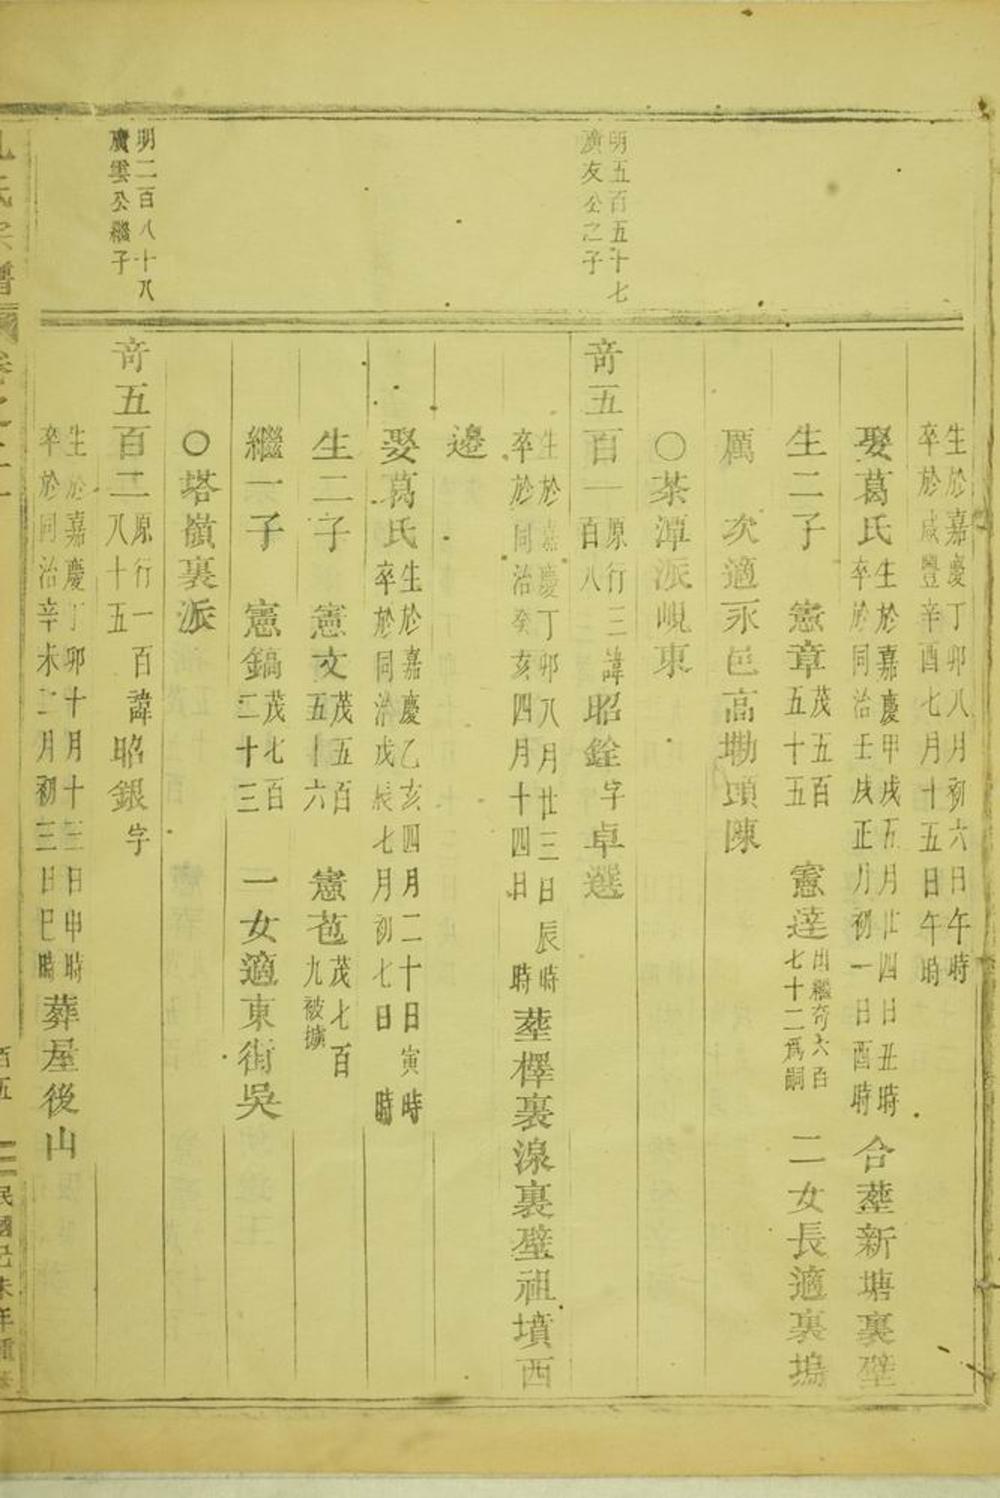 生於嘉慶丁卯八月初六日午時
卒於咸豐辛酉七月十五日午時
娶葛氏
生於嘉慶甲戌五月廿四日丑時
卒於同治壬戌正月初一日酉時
合塟新塘裏壁
生二子 憲章
茂五百
五十五
憲達
出繼奇六百
七十二爲嗣
二女長適裏塢
厲 次適永邑高塘頭陳
○茶潭派峴東
明五百五十七
廣友公之子
奇五百一
原行三
百八
諱昭銓字卓選
生於嘉慶丁卯八月廿三日辰時
卒於同治癸亥四月十四日 時
塟檡裏湶裏壁祖墳西
邊
娶葛氏
生於嘉慶乙亥四月二十日寅時
卒於同治戊辰七月初七日 時
生二子 憲文
茂五百
五十六
憲苞
茂七百
九被擄
繼一子 憲鎬
茂七百
二十三
一女適東街吳
○塔嶺裏派
明二百八十八
廣雲公繼子
奇五百二
原行一百
八十五
諱昭銀字
生於嘉慶丁卯十月十三日申時
卒於同治辛未二月初三日巳時
葬屋後山
孔氏宗譜 卷之
百五
民國己未年重修